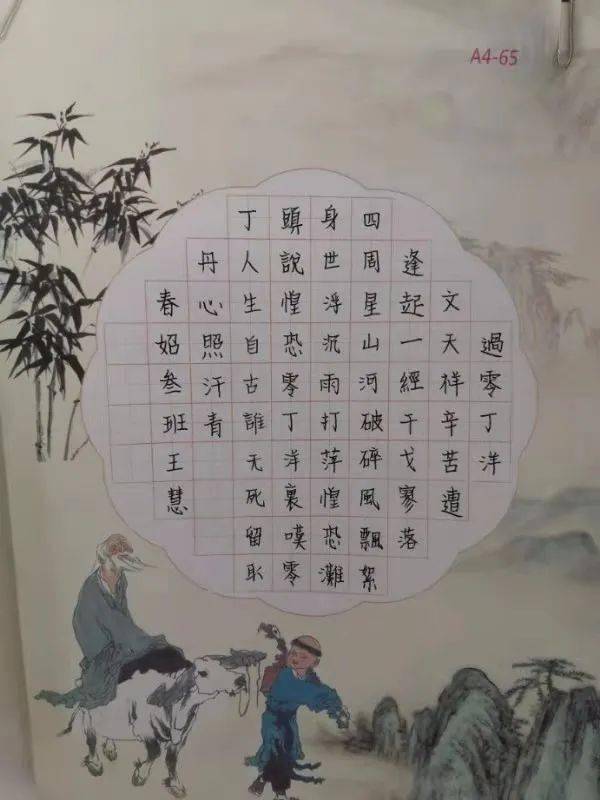 A4-65
過零丁洋
文天祥辛苦遭
逢起一經干戈寥落
四周星山河破碎風飄絮
身世浮沉雨打萍惶恐灘
頭說惶恐零丁洋裏嘆零
丁人生自古誰无死留取
丹心照汗青
春妱叁班王慧